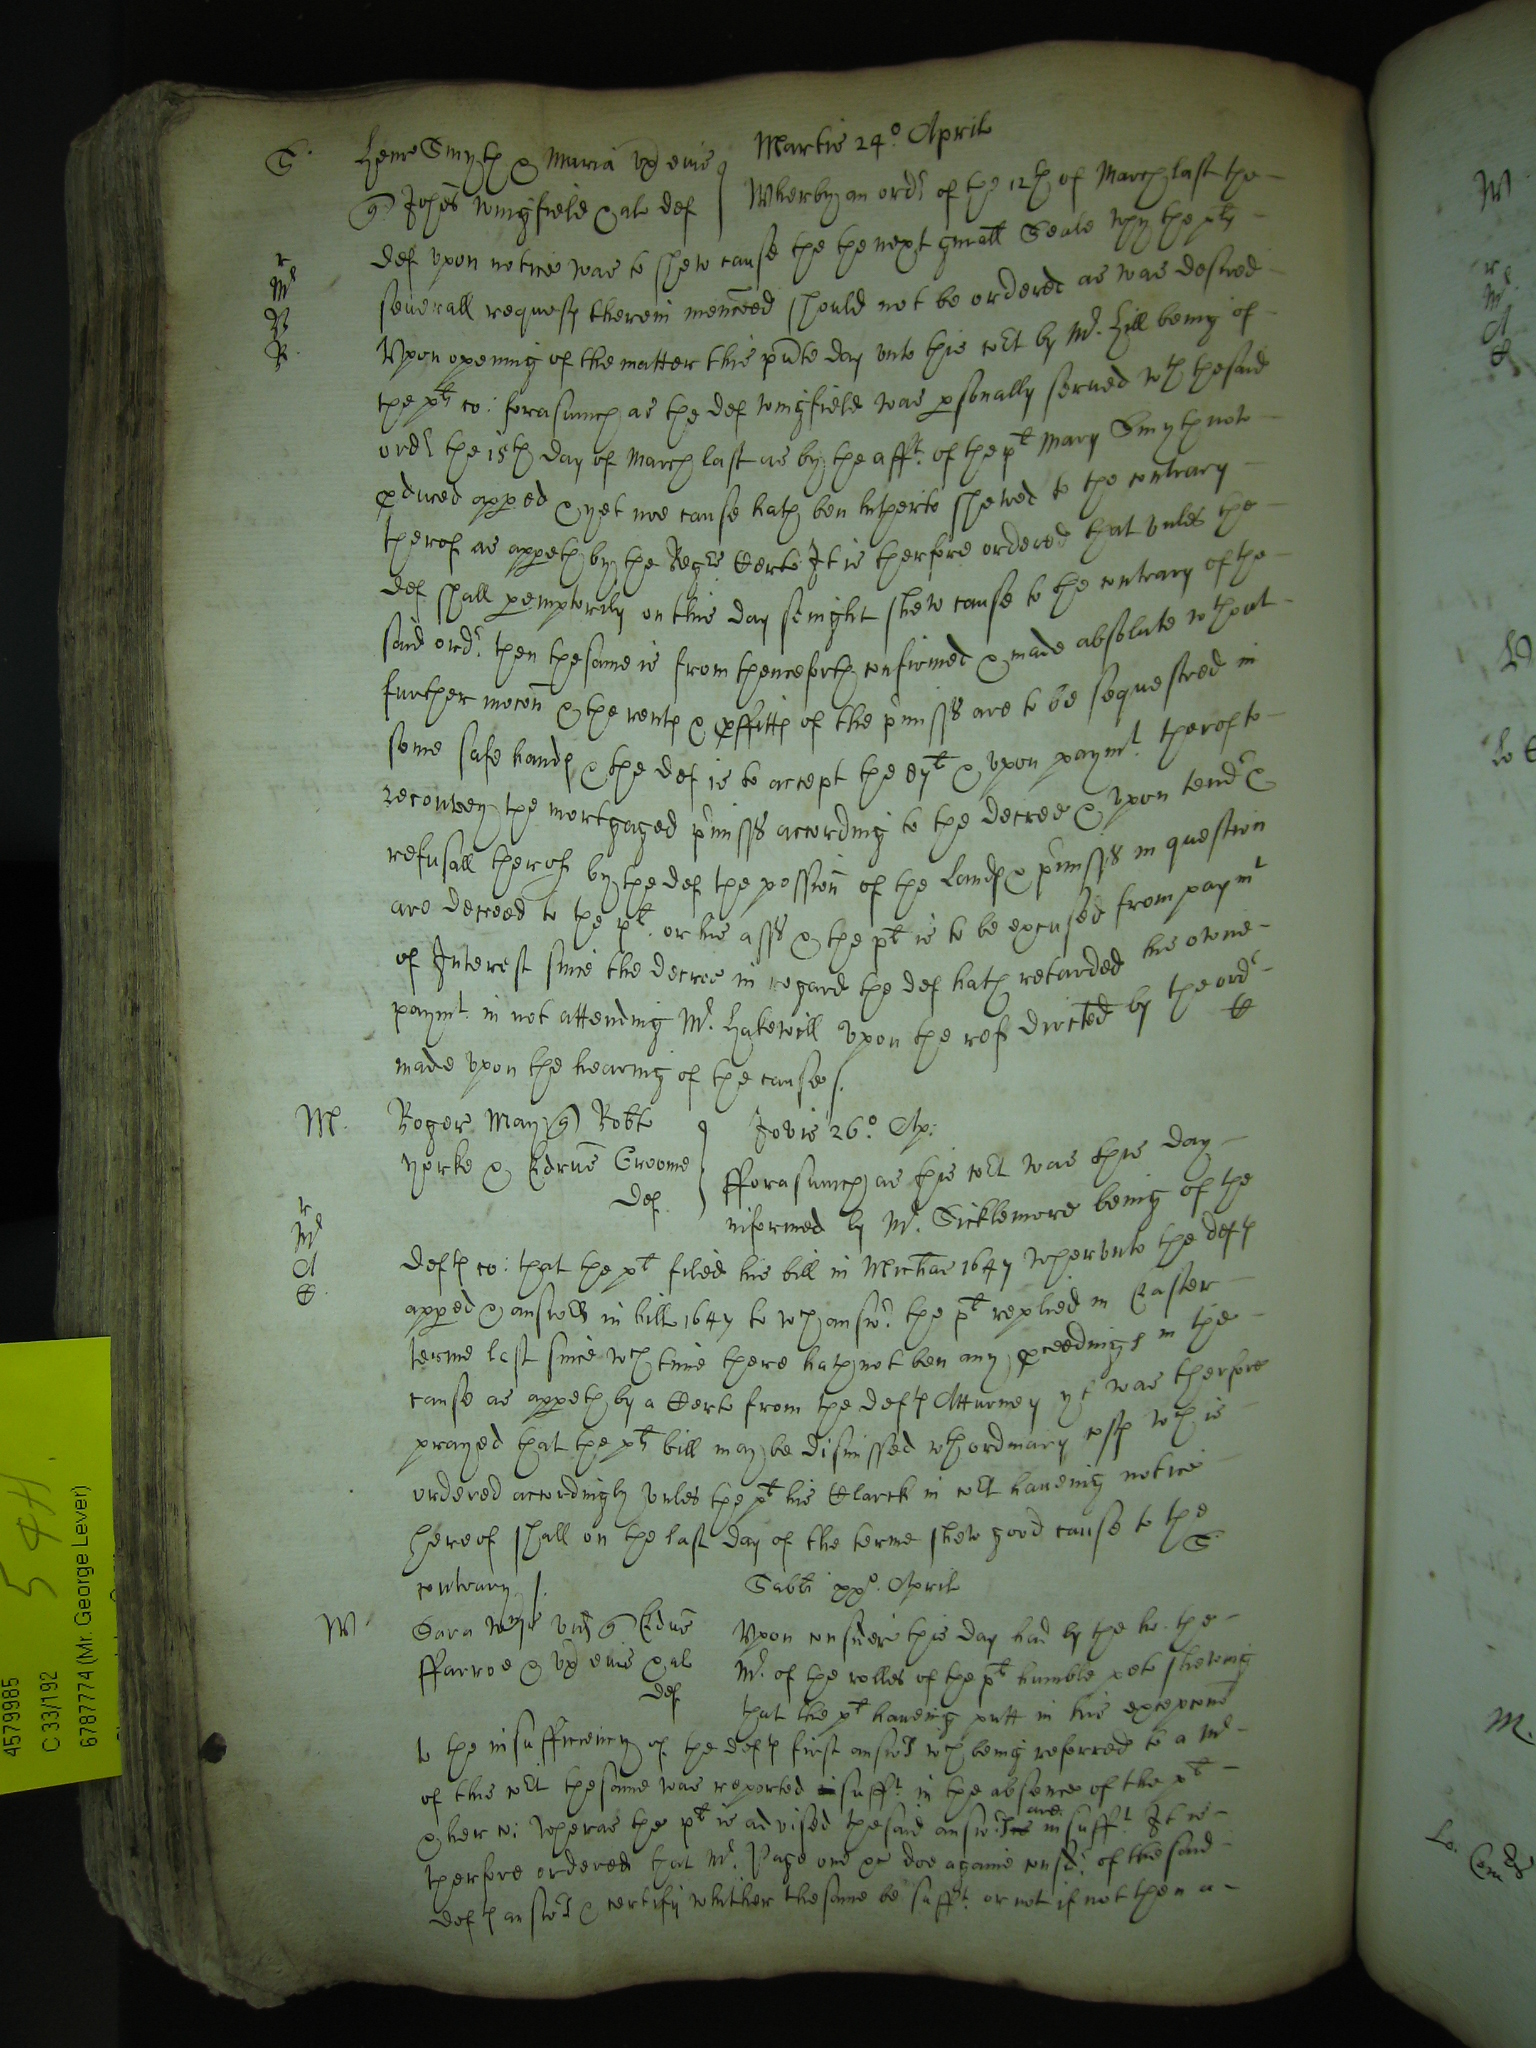 Martis 24o. April
S. Henr Smyth & Maria vx eius
Qr Johes Wingfield & al def
Wherby an ordr of the 12th of March last the
def vpon notice was to shew cause the the next genall Seale why the plts
seuerall requests therein menconed should not be ordered as was desired
Vpon opening of the matter this pnte day vnto this cort by Mr. Hill being of
the plts co: forasmuch as the def Wingfield was psonally serued wth the said
ordr the 15th day of March last as by the afft. of the plt Mary Smyth now
pduced apped & yet noe cause hath ben hitherto shewed to the contrary
therof as appeth by the Regrs Certe It is therfore ordered that vnles the
def shall pemptorily on this day senight shew cause to the contrary of the
said ordr. then the same is from thenceforth confirmed & made absolute without
further mocon & the rents & pffitts of the pmisss are to be sequestred in
some safe hands & the def is to accept the & vpon paymt. therof to
reconvey the mortgaged pmisss according to the decree & vpon tendr &
refusall therof by the def the possion of the Lands & pmisss in question
are decreed to the plt. or his asss & the plt is to be excused from paymt
of Interest since the decree in regard the def hath retarded his owne
paymt. in not attending Mr. Hakewill vpon the ref directed by the ordr
made vpon the hearing of the cause /.
M. Roger May Qr Robte
Yorke & Edrus Groome
def.
Jovis 26o. Ap:
fforasmuch as this cort was this day
informed by Mr. Sicklemore being of the
defts co: that the plt filed his bill in Michas 1647 whervnto the defts
apped & answed in hill 1647 to wch answr. the plt replied in Easter
terme last since wch time there hath not ben any pceedings in the
cause as appeth by a Certe from the defts Atturney yt was therfore
prayed that the plts bill may be dismissed wth ordinary costs wch is
ordered accordingly vnles the plt his Clarck in cort haueing notice
hereof shall on the last day of the terme shew good cause to the
contrary /.
Sabti xxo. April
W. Sara vid Qr Edrus
ffarroe & vx eius & al
def
Vpon consideracon this day had by the ho. the
Mr. of the rolles of the plt humble peto shewing
that the plt haueing putt in his excepcons
to the insufficiency of the defts first answr wch being referred to a Mr
of this cort the same was reported sufft. in the absence of the plt
& her co: Wheras the plt is advised the said answrs are insufft. It is
therfore ordered that Mr. Page one &c doe againe consdr. of the said
defts answrs & certify whither the same be sufft. or not if not then a
4579985
C 33/192
6787774 (Mr. George Lever)